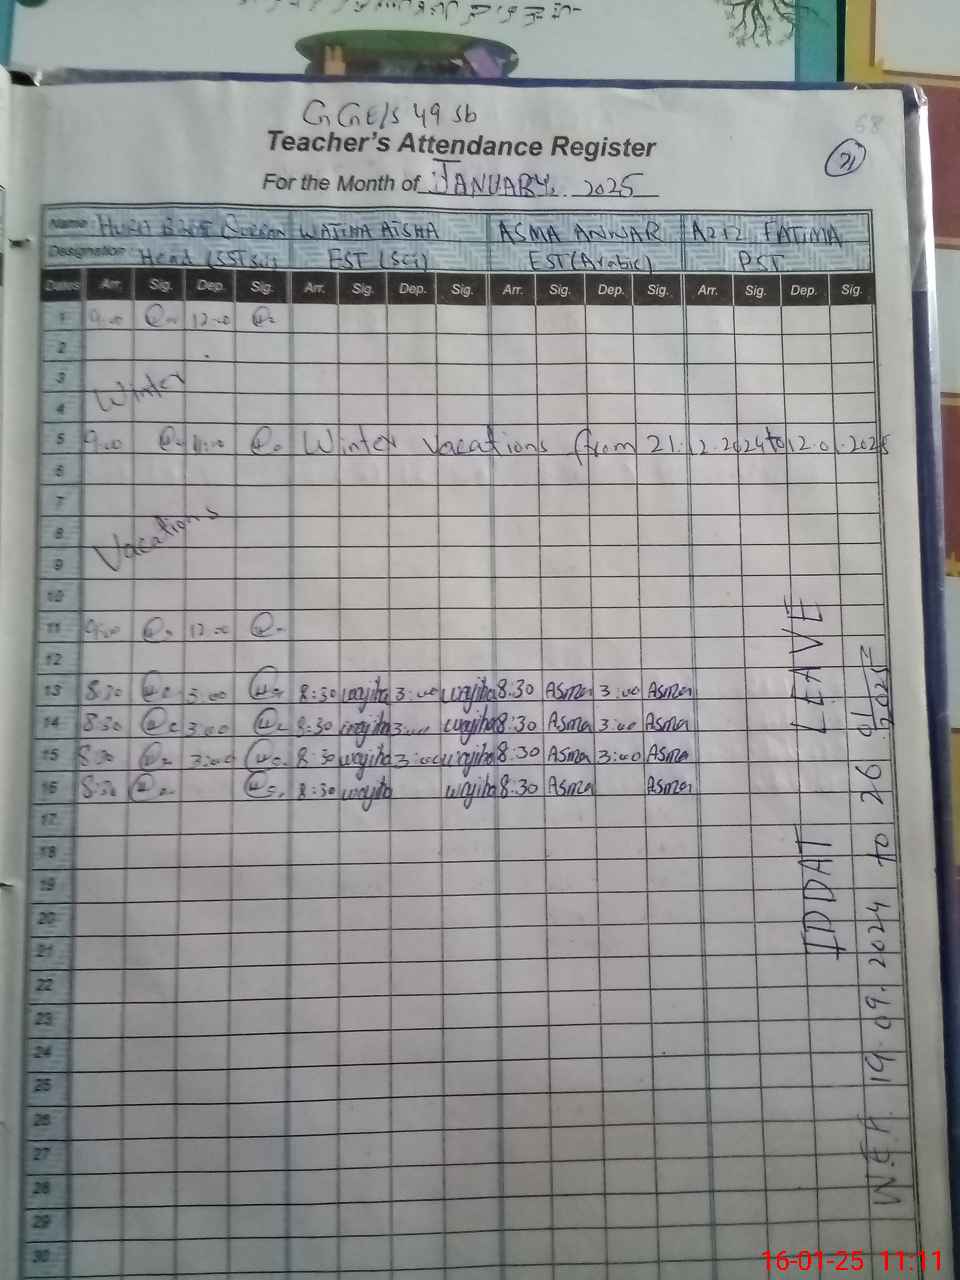 GGE/S 49 sb
68
Teacher's Attendance Register
21
For the Month of JANUARY, 2025
Name HURN WAJIHA AISHA ASMA ANWAR FATIMA
Designation Head (SST Sci) EST (Sci) EST (Arabic) PST
Dates Arr. Sig. Dep. Sig. Arr. Sig. Dep. Sig. Arr. Sig. Dep. Sig. Arr. Sig. Dep. Sig.
1 9:00 12:00
2
3
Winter
4
5 9:00 11:00 Winter vacations from 21.12.2024 to 12.01.2025
6
7
8
Vacations
9
10
11 9:00 12:00
12
13 8:30 3:00 8:30 wajiha 3:00 wajiha 8:30 Asma 3:00 Asma
14 8:30 3:00 8:30 wajiha 3:00 wajiha 8:30 Asma 3:00 Asma
15 8:30 3:00 8:30 wajiha 3:00 wajiha 8:30 Asma 3:00 Asma
16 8:30 8:30 wajiha wajiha 8:30 Asma Asma
17
18
19
20
21
22
23
24
25
26
27
28
29
30
IDDAT LEAVE
W.E.F. 19.09.2024 to 26.01.2025
16-01-25 11:11